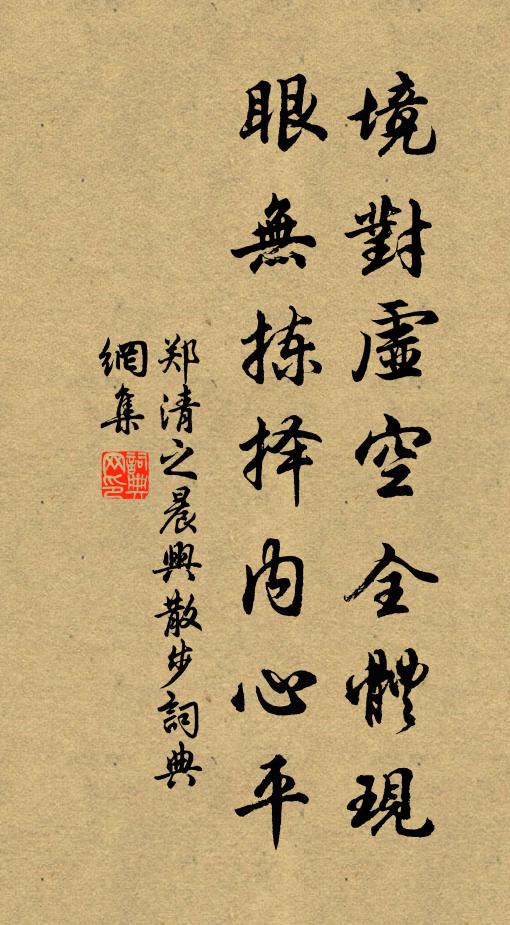 境對虛空全體現
眼無拣择内心平
郑清之晨興散步詞典
網集
詞典
网印